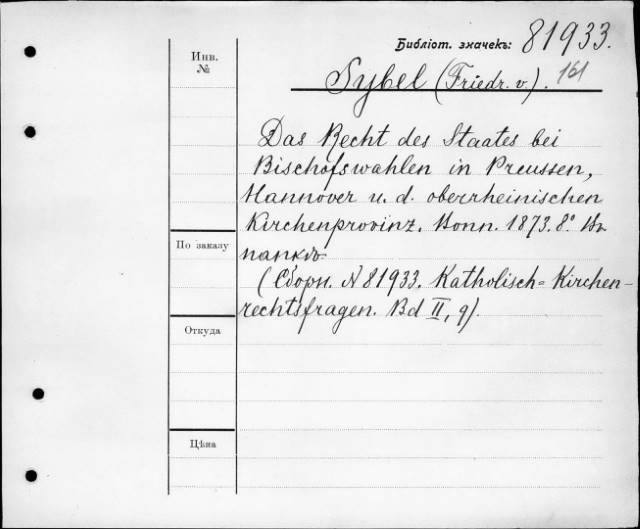 Библіот. значекъ: 81933.
Инв. №
Sybel (Friedr. v.). 161
Das Recht des Staates bei
Bischofswahlen in Preussen,
Hannover u. d. oberrheinischen
Kirchenprovinz. Bonn. 1873. 8º. Въ
папкѣ
(Сборн. № 81933. Katholisch=Kirchen-
rechtsfragen. Bd II, 9).
По заказу
Откуда
Цѣна